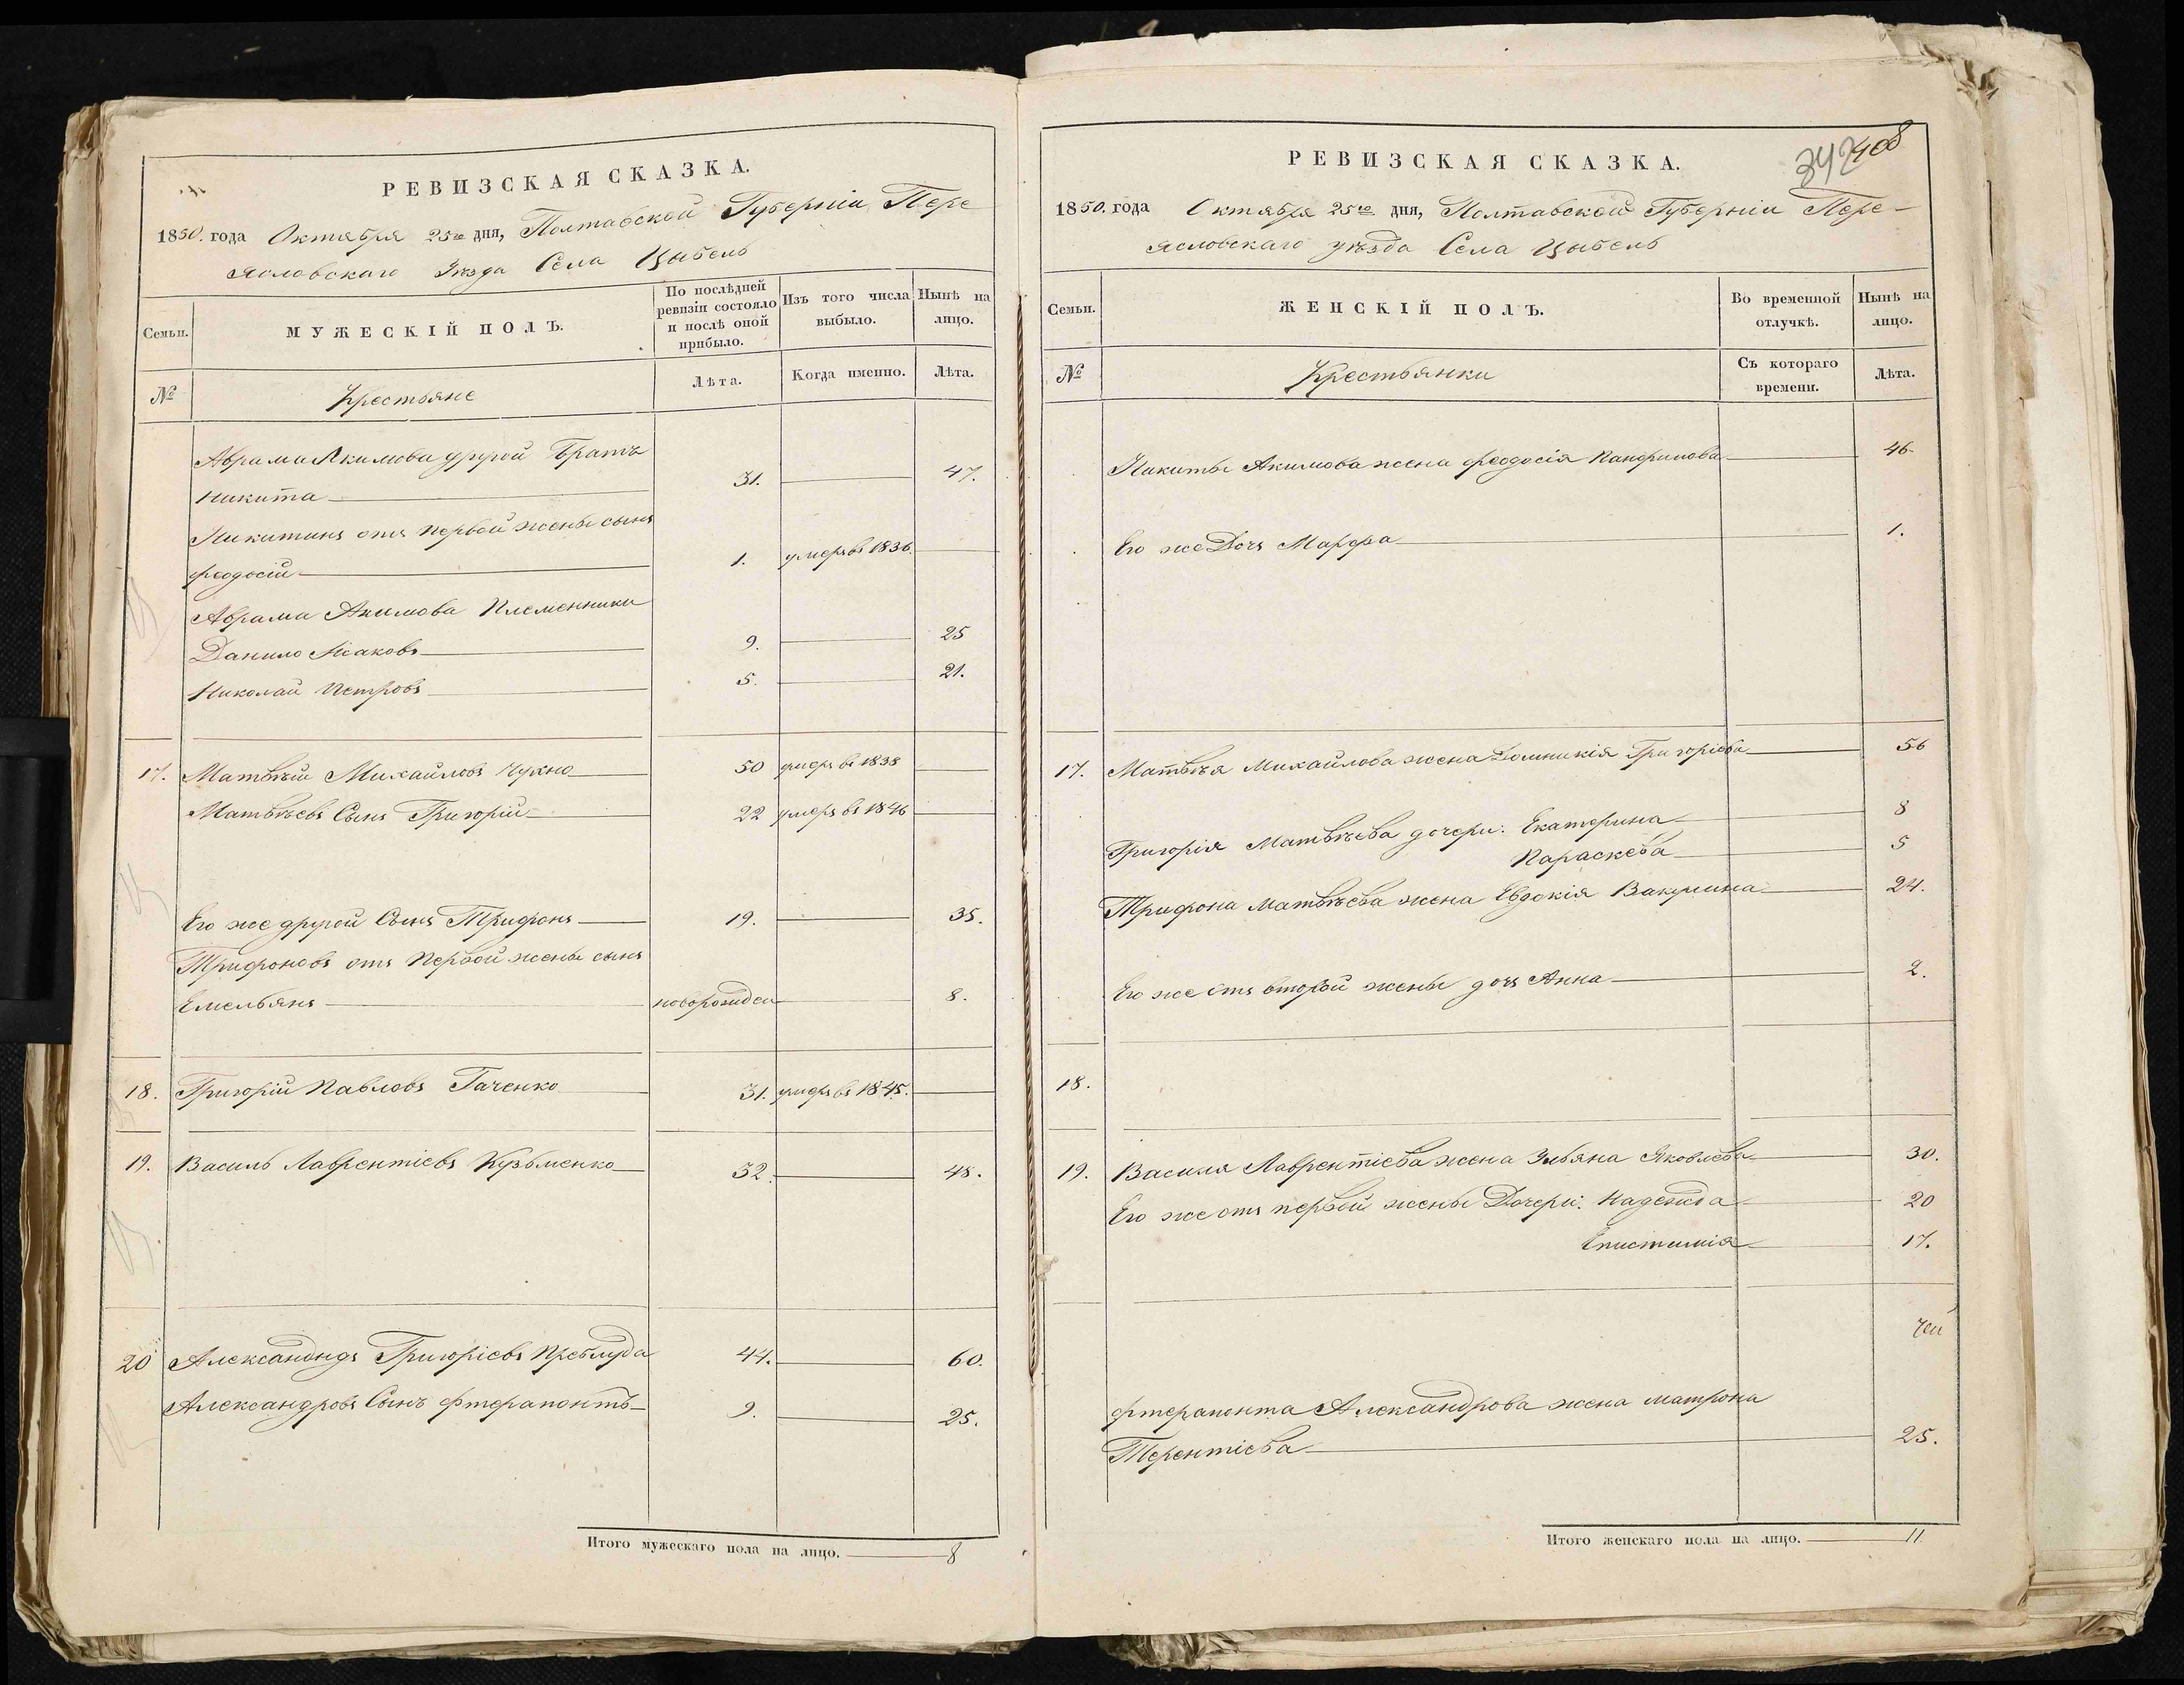 РЕВИЗСКАЯ СКАЗКА.
1850. года Октября 25го дня, Полтавской Губернiи Пере
ясловскаго Уѣзда Села Цыбель
Семьи.
МУЖЕСКIЙ ПОЛЪ.
По послѣдней
ревизiи состояло
и послѣ оной
прибыло.
Изъ того числа
выбыло.
Нынѣ на
лицо.
№
Крестьяне
Лѣта.
Когда именно.
Лѣта.
Аврама Якимова другой Братъ
Никита 31. 47.
Никитинъ отъ первой жены сынъ
Феодосiй 1. умеръ въ 1836.
Аврама Акимова Племенники
Данило Исаковъ 9. 25
Николай Петровъ 5. 21.
17. Матвѣй Михайловъ Чухно 50 умеръ въ 1838
Матвѣевъ Сынъ Григорiй 22 умеръ въ 1846
Его же другой Сынъ Трифонъ 19. 35.
Трифоновъ отъ первой жены сынъ
Емельянъ новорожден 8.
18. Григорiй Павловъ Гаченко 31. умеръ въ 1845.
19. Василь Лаврентiевъ Кузьменко 32. 48.
20 Александръ Григорiевъ Преблуда 44. 60.
Александровъ Сынъ Фтерапонтъ 9. 25.
Итого мужескаго пола на лицо. 8
342 408
РЕВИЗСКАЯ СКАЗКА.
1850. года Октября 25го дня, Полтавской Губернiи Пере-
ясловскаго уѣзда Села Цыбель
Семьи.
ЖЕНСКIЙ ПОЛЪ.
Во временной
отлучкѣ.
Нынѣ на
лицо.
№
Крестьянки
Съ котораго
времени.
Лѣта.
Никиты Акимова жена Феодосiя Панфилова 46
Его же Дочь Марфа 1.
17. Матвѣя Михайлова жена Домникiя Григорiева 56
Григорiя Матвѣева дочери: Екатерина 8
Параскева 5
Трифона Матвѣева жена Евдокiя Вакулина 24.
Его же отъ второй жены дочь Анна 2.
18.
19. Василя Лаврентiева жена Ульяна Яковлева 30.
Его же отъ первой жены Дочери: Надежда 20
Епистимiя 17.
Фтерапонта Александрова жена Матрона
Терентiева 25.
Итого женскаго пола на лицо. 11